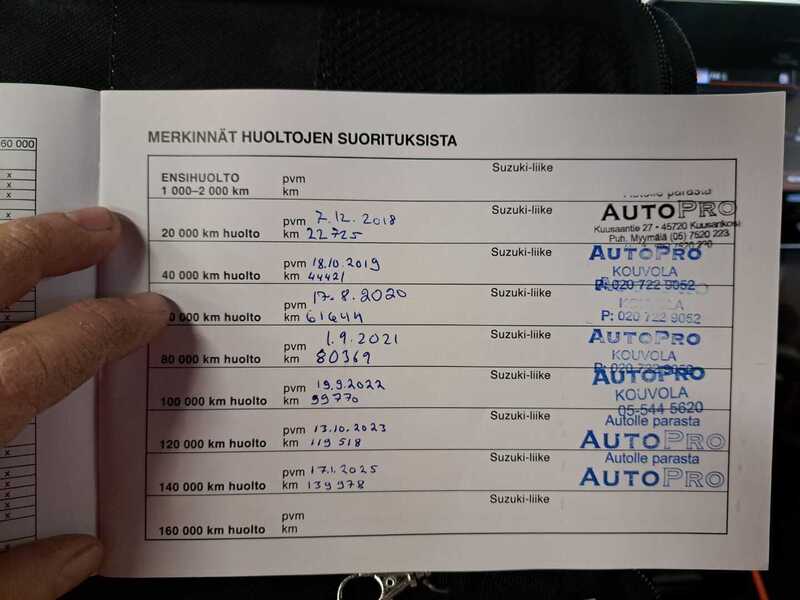 60 000
x
x
x
x
MERKINNÄT HUOLTOJEN SUORITUKSISTA
ENSIHUOLTO pvm Suzuki-liike
1 000–2 000 km km
Autolle parasta
pvm 7.12.2018 Suzuki-liike AUTOPRO
20 000 km huolto km 22725 Kuusaantie 27 • 45720 Kuusankoski
Puh. Myymälä (05) 7520 223
pvm 18.10.2019 Suzuki-liike AUTOPRO
40 000 km huolto km 44421 KOUVOLA
P: 020 722 9052
pvm 17.8.2020 Suzuki-liike KOUVOLA
0 000 km huolto km 61644 P: 020 722 9052
pvm 1.9.2021 Suzuki-liike AUTOPRO
80 000 km huolto km 80369 KOUVOLA
P: 020 722 9052
pvm 19.9.2022 Suzuki-liike AUTOPRO
100 000 km huolto km 99770 KOUVOLA
05-544 5620
pvm 13.10.2023 Suzuki-liike Autolle parasta
120 000 km huolto km 119518 AUTOPRO
pvm 17.1.2025 Suzuki-liike Autolle parasta
140 000 km huolto km 139978 AUTOPRO
pvm Suzuki-liike
160 000 km huolto km